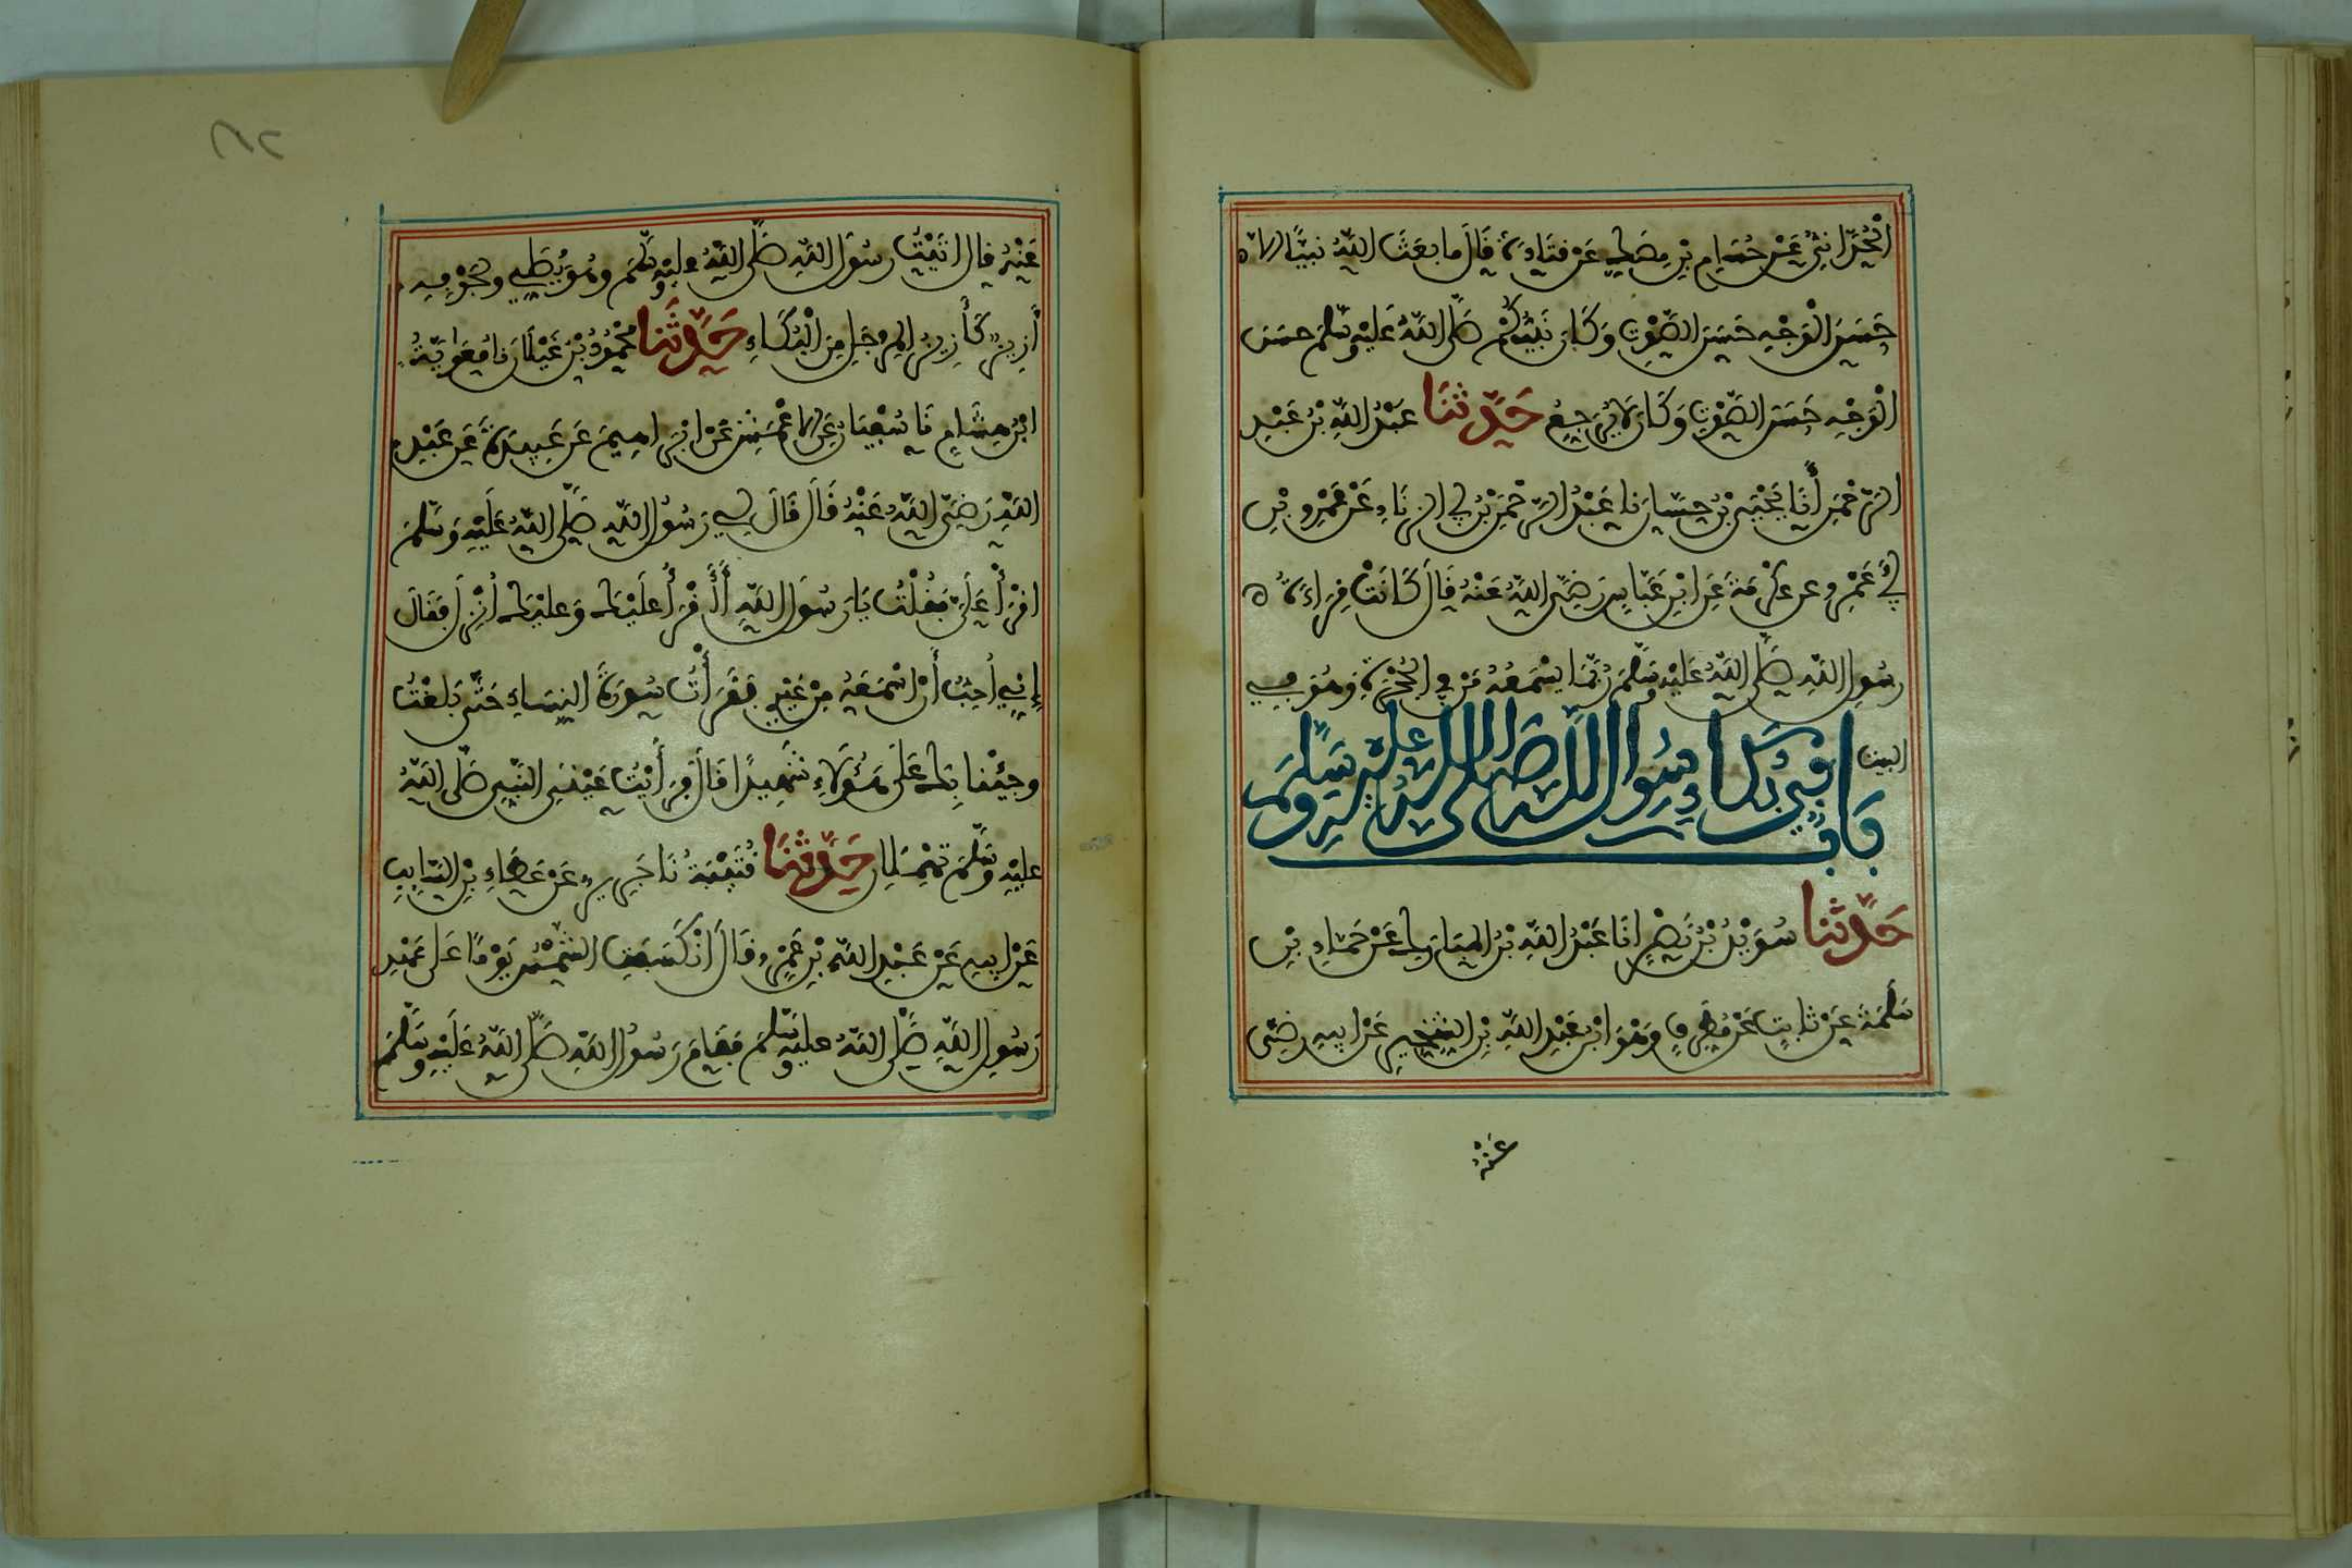 الحُدَّانِيُّ عَنْ حُسَامِ بْنِ مِصَكٍّ عَنْ قَتَادَةَ قَالَ مَا بَعَثَ اللَّهُ نَبِيًّا إِلَّا
حَسَنَ الْوَجْهِ حَسَنَ الصَّوْتِ وَكَانَ نَبِيُّكُمْ صَلَّى اللَّهُ عَلَيْهِ وَسَلَّمَ حَسَنَ
الْوَجْهِ حَسَنَ الصَّوْتِ وَكَانَ لَا يُرَجِّعُ حَدَّثَنَا عَبْدُ اللَّهِ بْنُ عَبْدِ
الرَّحْمَنِ أَنَا يَحْيَى بْنُ حَسَّانَ نَا عَبْدُ الرَّحْمَنِ بْنُ أَبِي الزِّنَادِ عَنْ عَمْرِو بْنِ
أَبِي عَمْرٍو عَنْ عِكْرِمَةَ عَنِ ابْنِ عَبَّاسٍ رَضِيَ اللَّهُ عَنْهُ قَالَ كَانَتْ قِرَاءَةُ
رَسُولِ اللَّهِ صَلَّى اللَّهُ عَلَيْهِ وَسَلَّمَ رُبَّمَا يَسْمَعُهُ مَنْ فِي الْحُجْرَةِ وَهُوَ فِي
الْبَيْتِ بَابٌ فِي بُكَاءِ رَسُولِ اللَّهِ صَلَّى اللَّهُ عَلَيْهِ وَسَلَّمَ
حَدَّثَنَا سُوَيْدُ بْنُ نَصْرٍ أَنَا عَبْدُ اللَّهِ بْنُ الْمُبَارَكِ عَنْ حَمَّادِ بْنِ
سَلَمَةَ عَنْ ثَابِتٍ عَنْ مُطَرِّفٍ وَهُوَ ابْنُ عَبْدِ اللَّهِ بْنِ الشِّخِّيرِ عَنْ أَبِيهِ رَضِيَ
عَنْهُ
عَنْهُ قَالَ أَتَيْتُ رَسُولَ اللَّهِ صَلَّى اللَّهُ عَلَيْهِ وَسَلَّمَ وَهُوَ يُصَلِّي وَلِجَوْفِهِ
أَزِيزٌ كَأَزِيزِ الْمِرْجَلِ مِنَ الْبُكَاءِ حَدَّثَنَا مَحْمُودُ بْنُ غَيْلَانَ نَا مُعَاوِيَةُ
ابْنُ هِشَامٍ نَا سُفْيَانُ عَنِ الْأَعْمَشِ عَنْ إِبْرَاهِيمَ عَنْ عَبِيدَةَ عَنْ عَبْدِ
اللَّهِ رَضِيَ اللَّهُ عَنْهُ قَالَ قَالَ لِي رَسُولُ اللَّهِ صَلَّى اللَّهُ عَلَيْهِ وَسَلَّمَ
اقْرَأْ عَلَيَّ فَقُلْتُ يَا رَسُولَ اللَّهِ أَأَقْرَأُ عَلَيْكَ وَعَلَيْكَ أُنْزِلَ فَقَالَ
إِنِّي أُحِبُّ أَنْ أَسْمَعَهُ مِنْ غَيْرِي فَقَرَأْتُ سُورَةَ النِّسَاءِ حَتَّى بَلَغْتُ
وَجِئْنَا بِكَ عَلَى هَؤُلَاءِ شَهِيدًا قَالَ فَرَأَيْتُ عَيْنَيِ النَّبِيِّ صَلَّى اللَّهُ
عَلَيْهِ وَسَلَّمَ تَهْمِلَانِ حَدَّثَنَا قُتَيْبَةُ نَا جَرِيرٌ عَنْ عَطَاءِ بْنِ السَّائِبِ
عَنْ أَبِيهِ عَنْ عَبْدِ اللَّهِ بْنِ عَمْرٍو قَالَ انْكَسَفَتِ الشَّمْسُ يَوْمًا عَلَى عَهْدِ
رَسُولِ اللَّهِ صَلَّى اللَّهُ عَلَيْهِ وَسَلَّمَ فَقَامَ رَسُولُ اللَّهِ صَلَّى اللَّهُ عَلَيْهِ وَسَلَّمَ